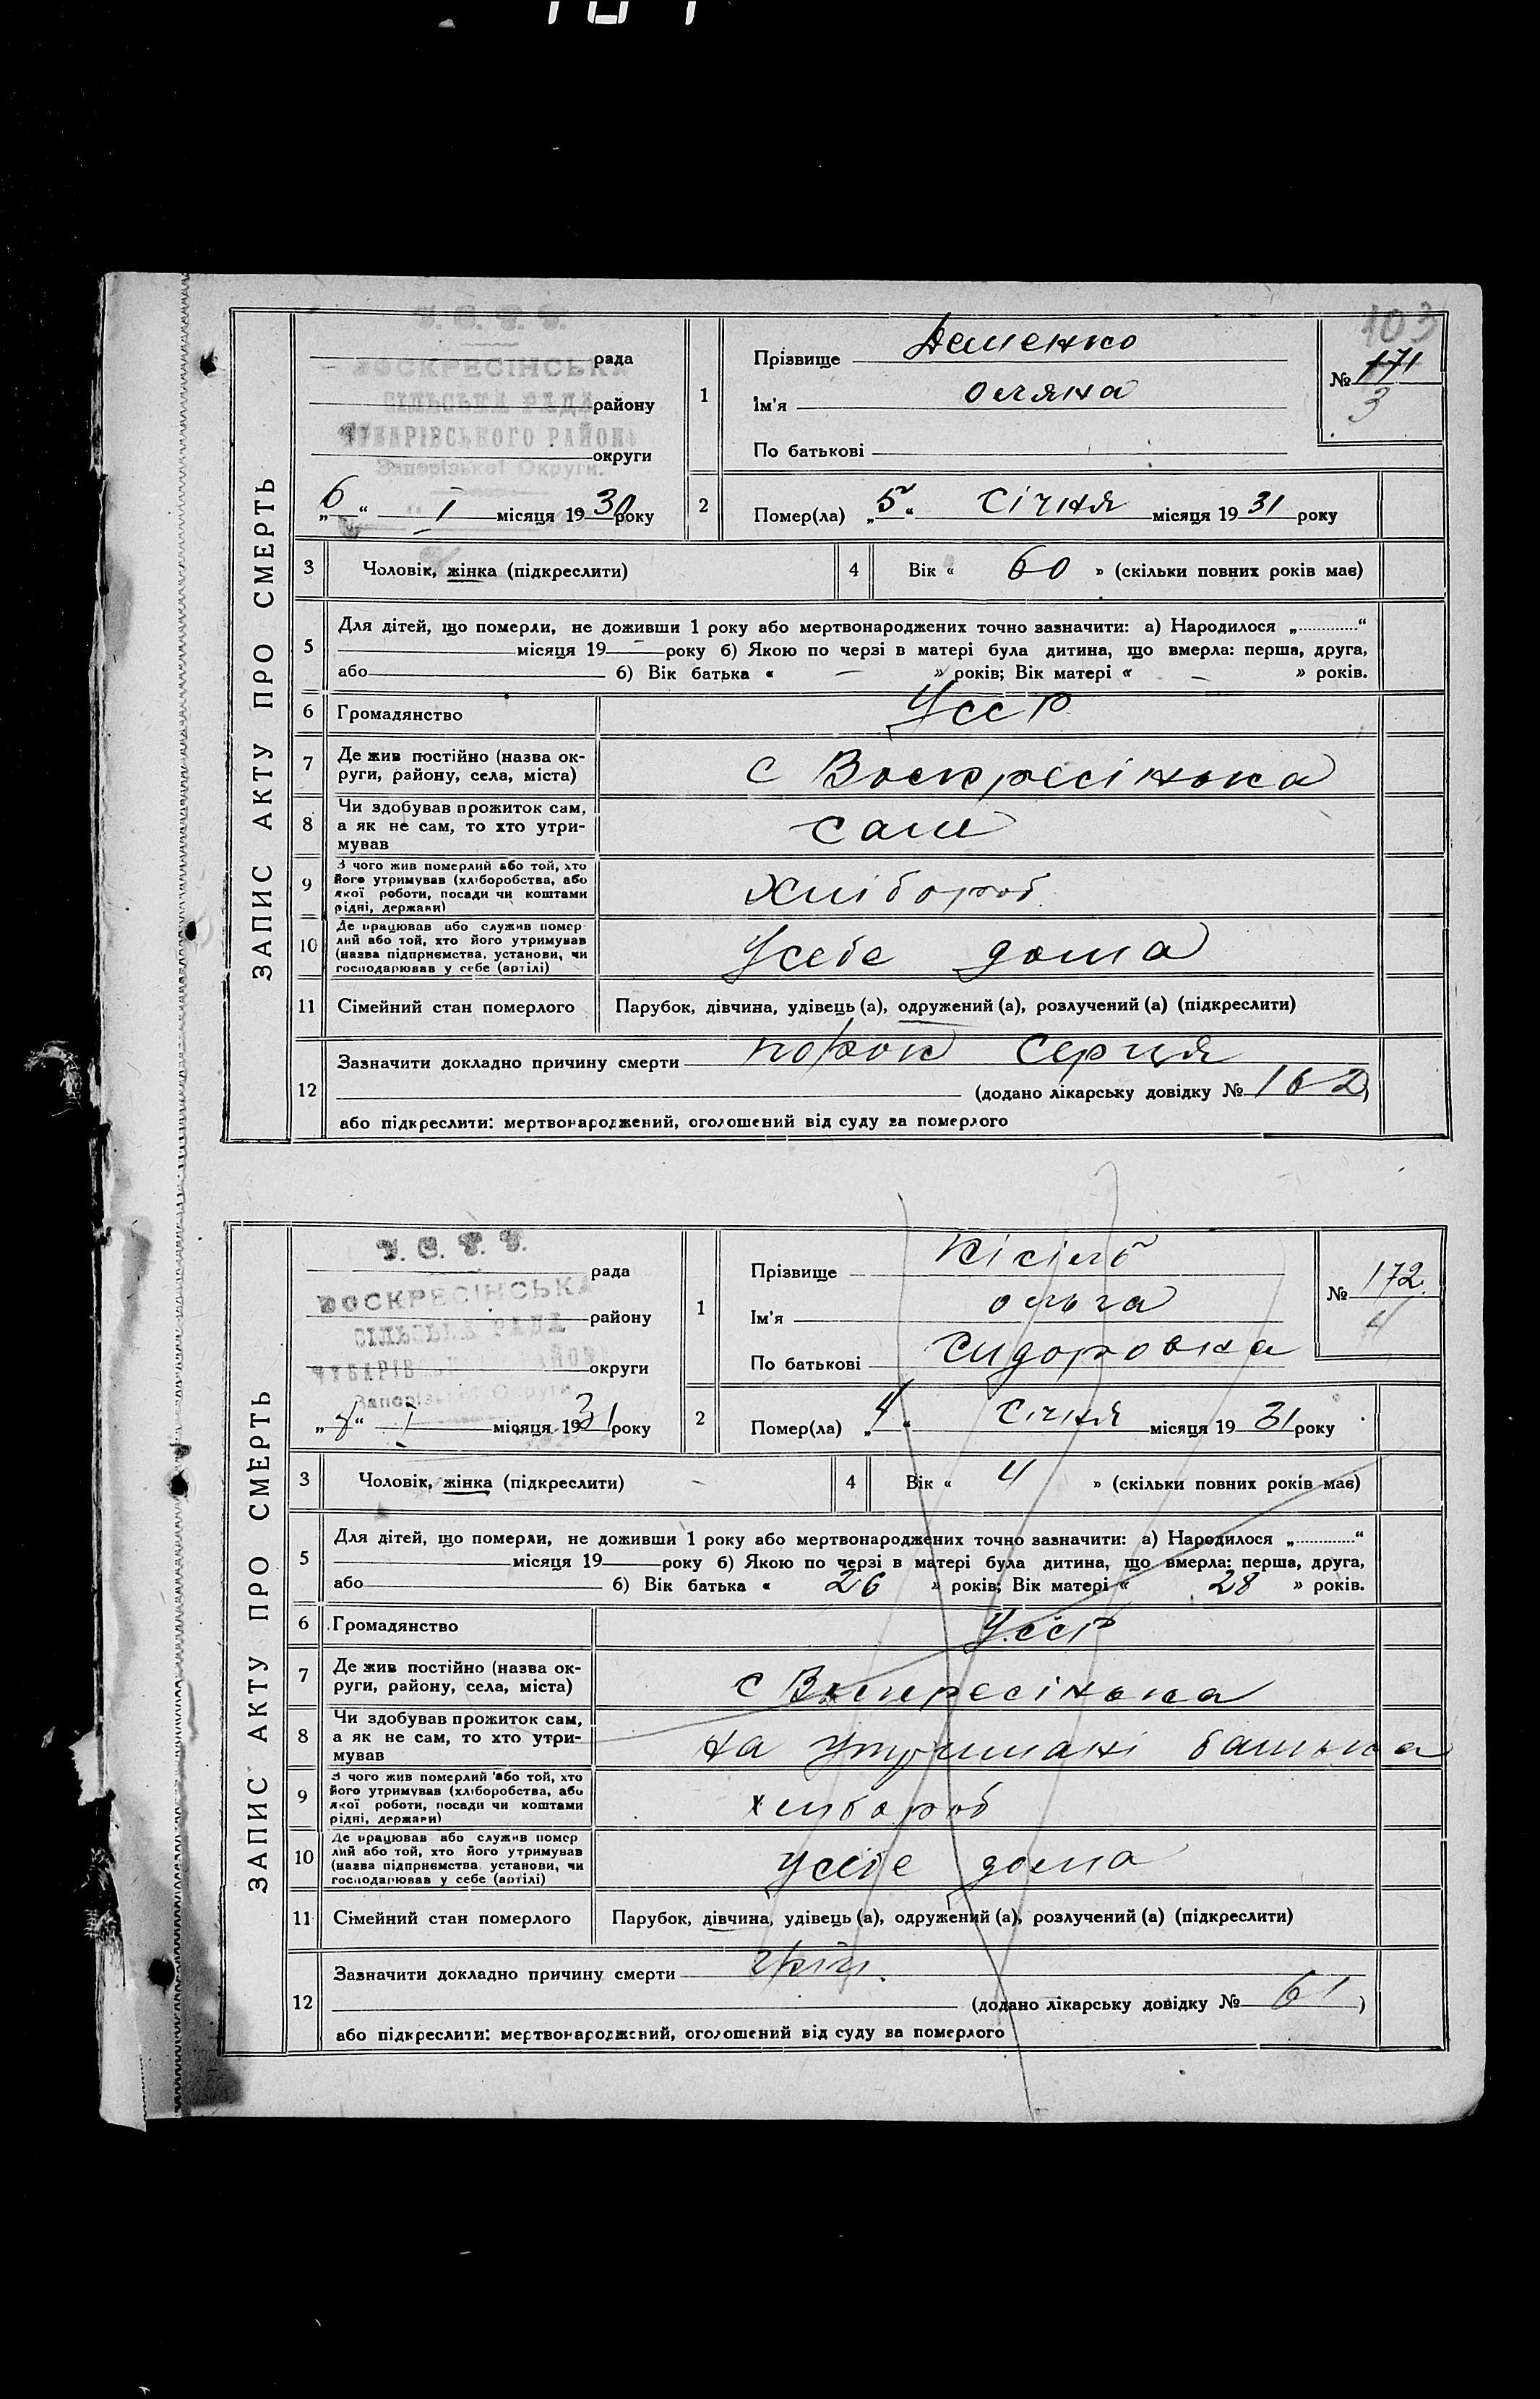 103
ЗАПИС АКТУ ПРО СМЕРТЬ
У. С. Р. Р.
ВОСКРЕСІНСЬКА
СІЛЬСЬКА РАДА
ЧУБАРІВСЬКОГО РАЙОНА
Запорізької Округи.
рада
району
округи
„6“ I місяця 1930 року
1
Прізвище Деменко
Ім'я Оляна
По батькові
№ 171
3
2
Помер(ла) „5“ Січня місяця 1931 року
3
Чоловік, жінка (підкреслити)
4
Вік « 60 » (скільки повних років має)
5
Для дітей, що померли, не доживши 1 року або мертвонароджених точно зазначити: а) Народилося „ “
місяця 19 — року б) Якою по черзі в матері була дитина, що вмерла: перша, друга,
або б) Вік батька « — » років; Вік матері « — » років.
6
Громадянство
Усср
7
Де жив постійно (назва ок-
руги, району, села, міста)
с Воскресінька
8
Чи здобував прожиток сам,
а як не сам, то хто утри-
мував
Сам
9
З чого жив померлий або той, хто
його утримував (хліборобства, або
якої роботи, посади чи коштами
рідні, держави)
Хлібороб.
10
Де працював або служив помер
лий або той, хто його утримував
(назва підприємства, установи, чи
господарював у себе (артілі)
Усебе дома
11
Сімейний стан померлого
Парубок, дівчина, удівець (а), одружений (а), розлучений (а) (підкреслити)
12
Зазначити докладно причину смерти порок серця
(додано лікарську довідку № 162)
або підкреслити: мертвонароджений, оголошений від суду за померлого
ЗАПИС АКТУ ПРО СМЕРТЬ
У. С. Р. Р.
ВОСКРЕСІНСЬКА
СІЛЬСЬКА РАДА
ЧУБАРІВСЬКОГО РАЙОНА
Запорізької Округи
рада
району
округи
I місяця 1931 року
1
Прізвище Кісіль
Ім'я Ольга
По батькові Сидоровна
№ 172.
4
2
Помер(ла) „4“ Січня місяця 1931 року
3
Чоловік, жінка (підкреслити)
4
Вік « 4 » (скільки повних років має)
5
Для дітей, що померли, не доживши 1 року або мертвонароджених точно зазначити: а) Народилося „ “
місяця 19 року б) Якою по черзі в матері була дитина, що вмерла: перша, друга,
або б) Вік батька « 26 » років; Вік матері « 28 » років.
6
Громадянство
Усср
7
Де жив постійно (назва ок-
руги, району, села, міста)
с Воскресінька
8
Чи здобував прожиток сам,
а як не сам, то хто утри-
мував
на утримані батька
9
З чого жив померлий або той, хто
його утримував (хліборобства, або
якої роботи, посади чи коштами
рідні, держави)
хлібороб
10
Де працював або служив помер
лий або той, хто його утримував
(назва підприємства, установи, чи
господарював у себе (артілі)
усебе дома
11
Сімейний стан померлого
Парубок, дівчина, удівець (а), одружений (а), розлучений (а) (підкреслити)
12
Зазначити докладно причину смерти гріп.
(додано лікарську довідку № 61)
або підкреслити: мертвонароджений, оголошений від суду за померлого